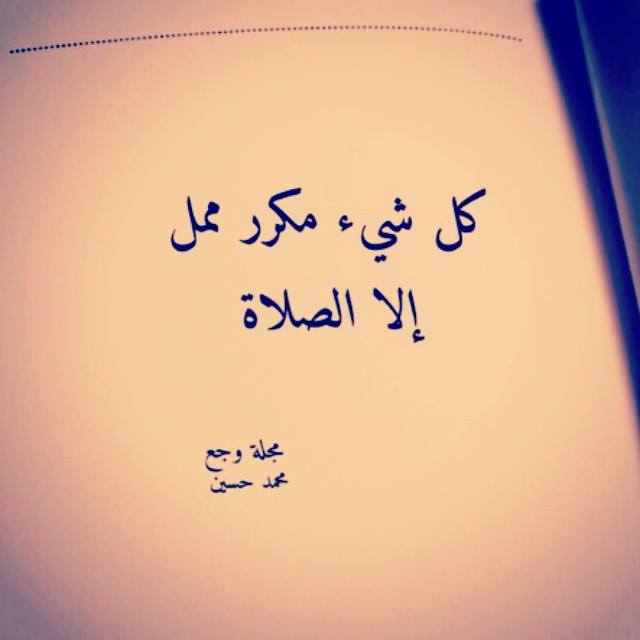 كل شيء مكرر ممل
إلا الصلاة
مجلة وجع
محمد حسين